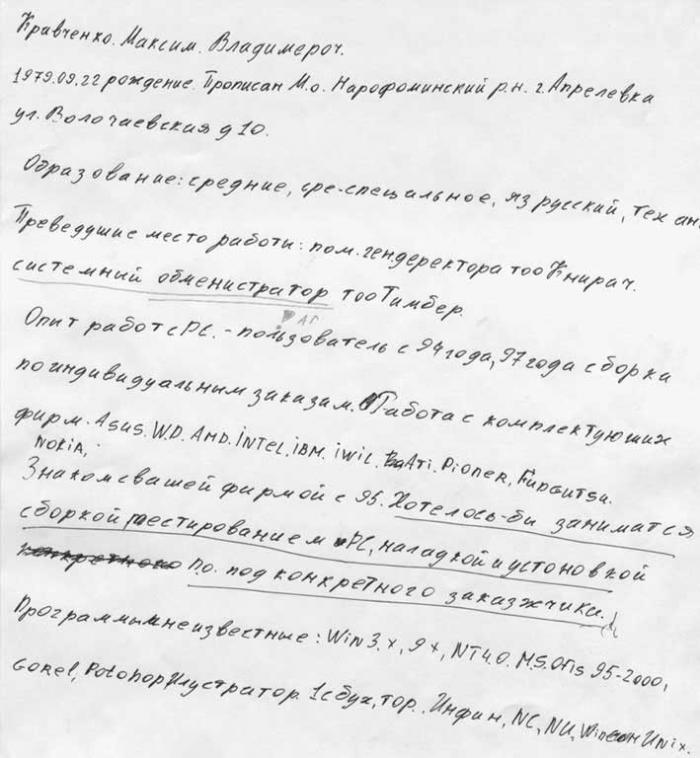 Кравченко. Максим. Владимероч.
1979.09.22 рождение. Прописан М.о. Нарофоминский р.н. г. Апрелевка
ул. Волочаевская д 10.
Образование: средние, сре-специльное, яз русский, тех ан.
Преведушие место работи: пом. ген.деректора тоо Книрач.
системний обменистратор тоо Тимбер.
Опит работ с PC. - пользователь с 94 года, 97 года сборка
по индивидуальним заказам. Работа с комплектующих
фирм. Asus. W.D. AMD. iNTEL. iBM. iWiL. ATi. Pioner, Fudgutsu.
NOKiA,
Знаком с вашей фирмой с 95. Хотелось-би заниматся
сборкой тестированием PC, наладкой и устоновкой
конкретного п.о. под конкретного заказжчика.
Программы мне известные: Win 3.x, 9x, NT4.0. M.S. Ofis 95-2000,
Gorel, Potohop, Илустратор. 1с бух, тор.. Инфин, NC, NU, Unix.